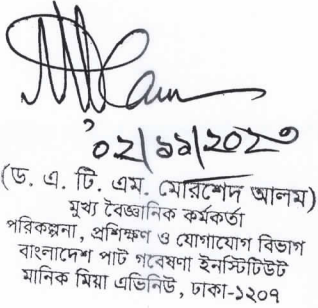 ০২/১১/২০২৩
(ড. এ. টি. এম. মোরশেদ আলম)
মুখ্য বৈজ্ঞানিক কর্মকর্তা
পরিকল্পনা, প্রশিক্ষণ ও যোগাযোগ বিভাগ
বাংলাদেশ পাট গবেষণা ইনস্টিটিউট
মানিক মিয়া এভিনিউ, ঢাকা-১২০৭